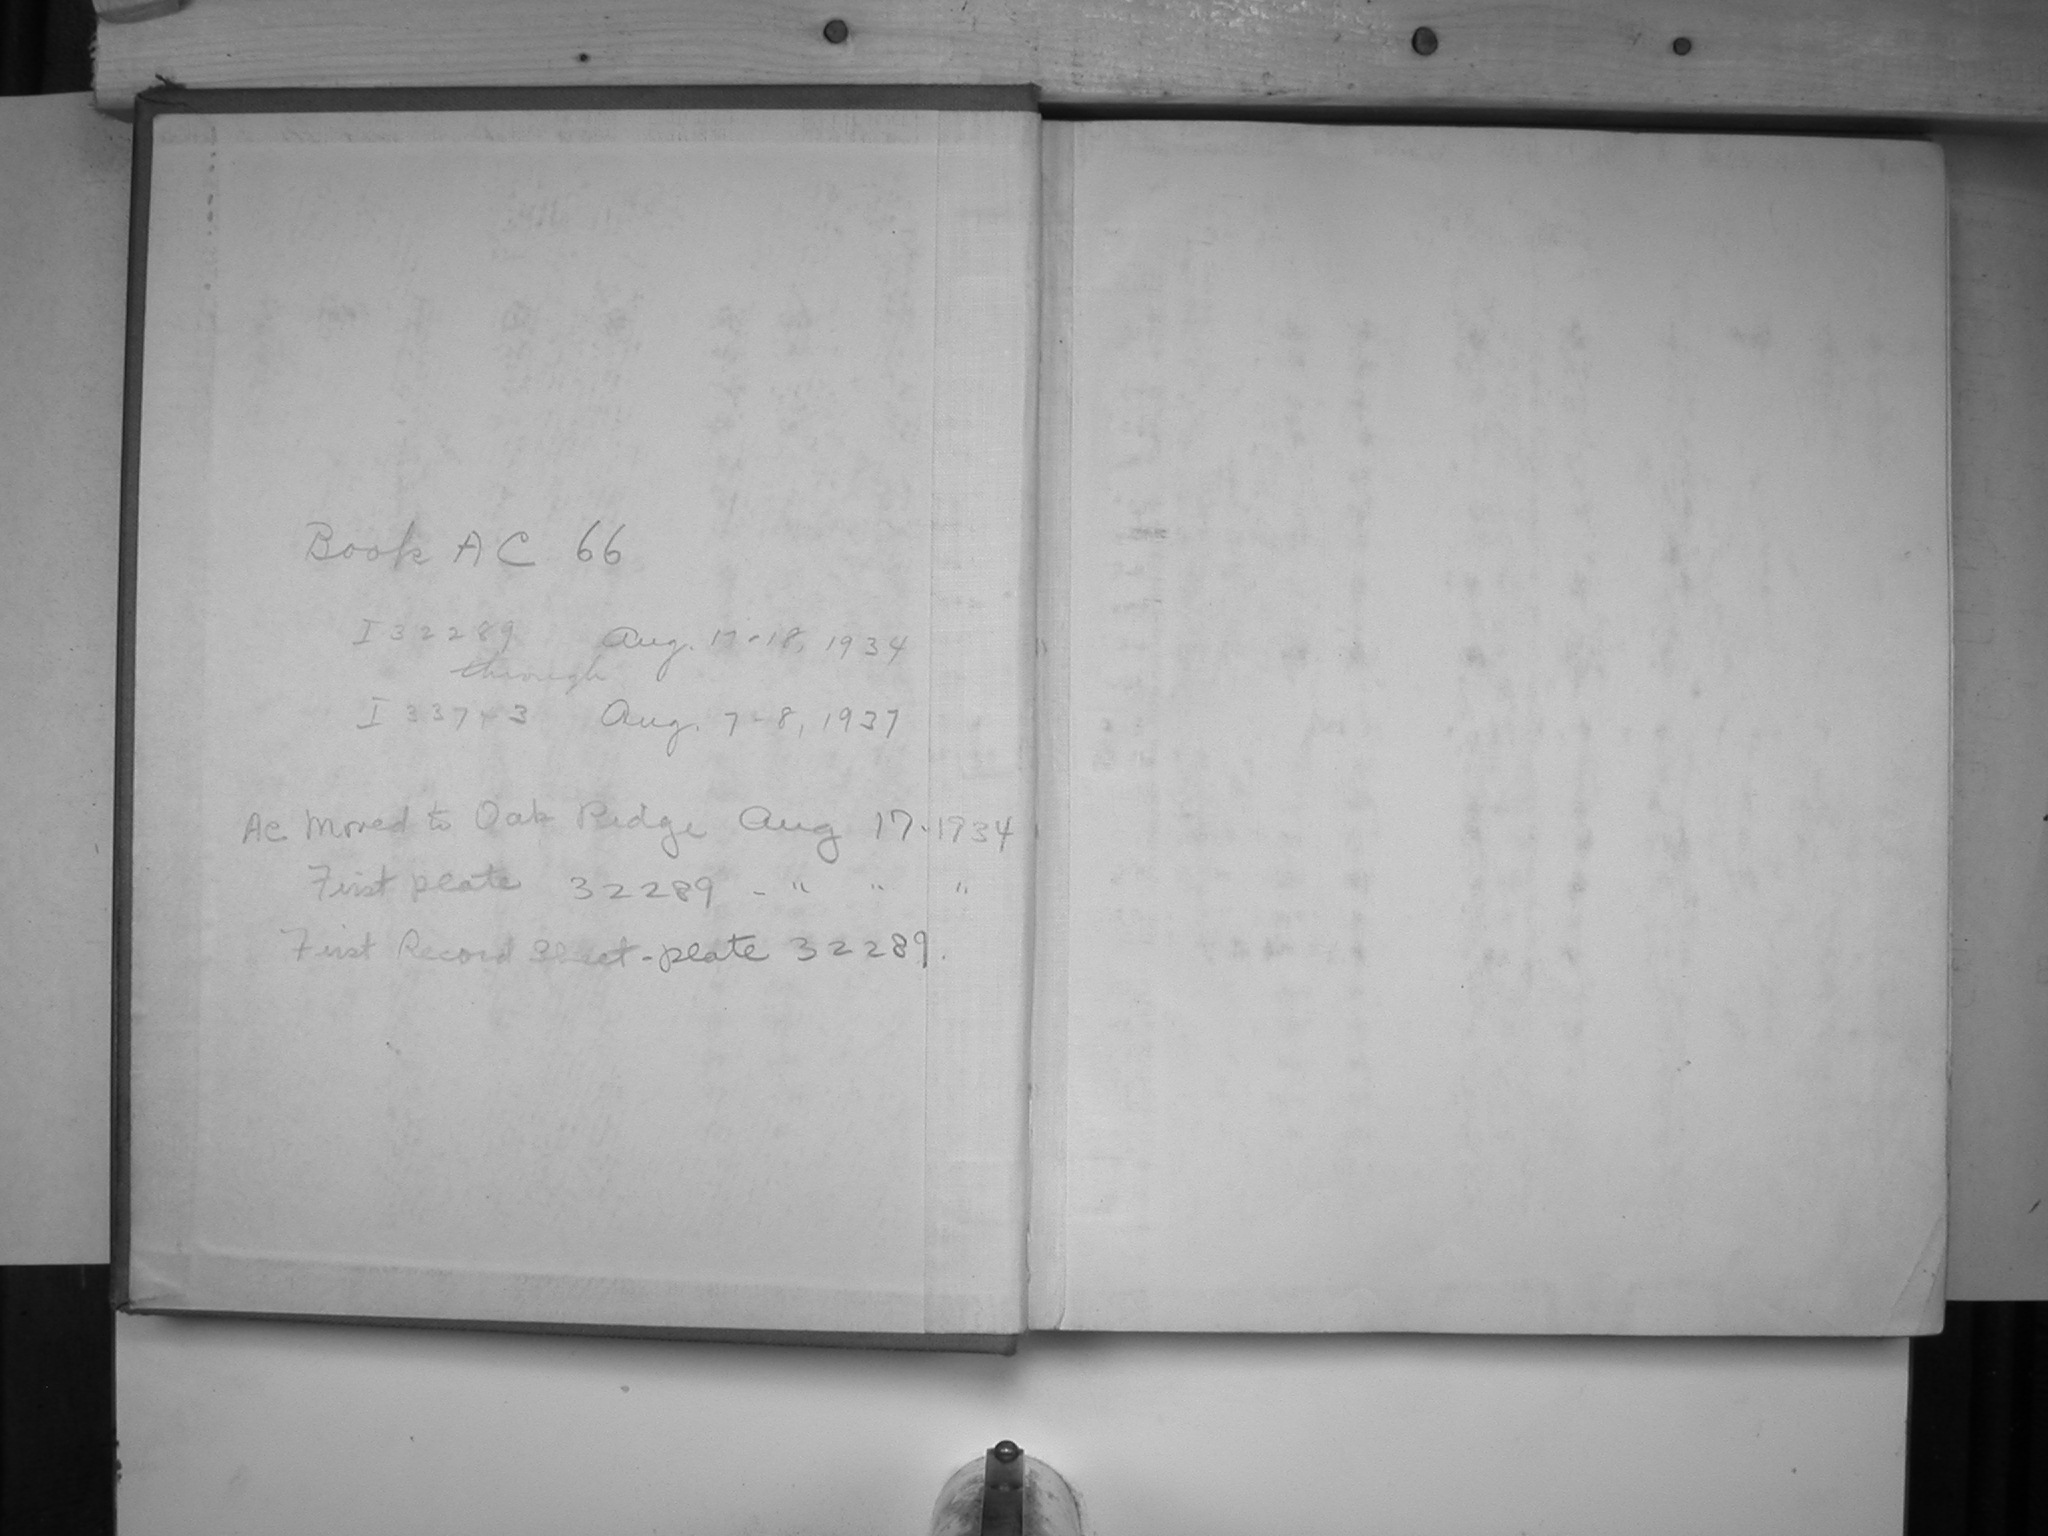 Book AC 66
I 32289 Aug. 17-18, 1934
through
I Aug. 7-8, 1937
AC Moved to Oak Ridge Aug 17-1934
First plate 32289 - " " "
First Record Sheet - plate 32289.